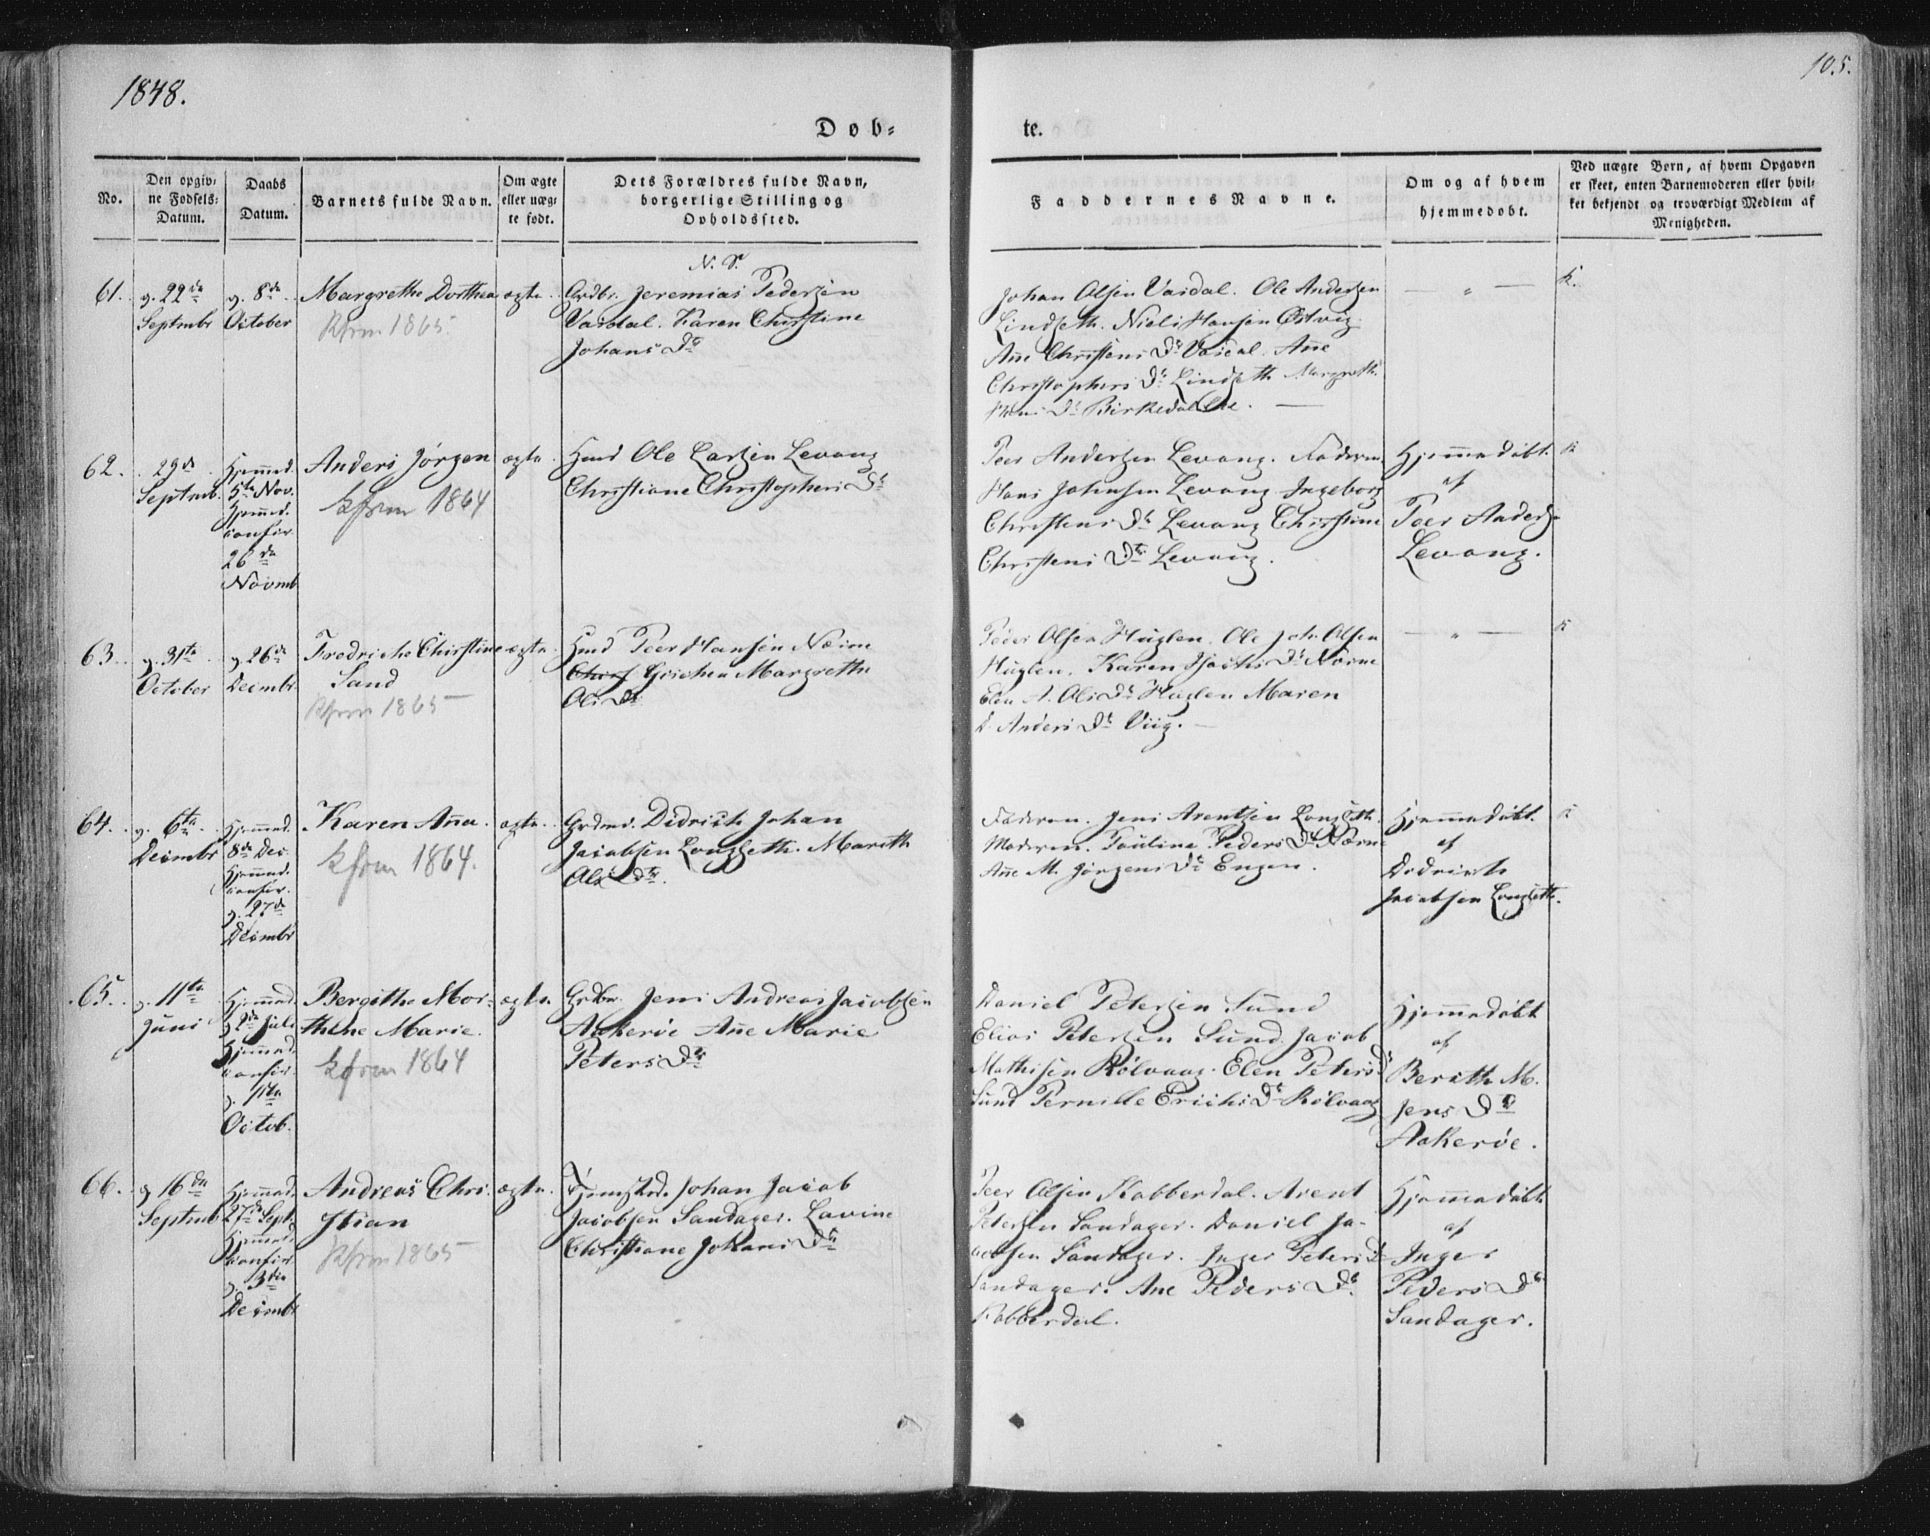 1848.
105.
Døb=
te.
No.
Den opgiv=
ne Fødsels=
Datum.
Daabs
Datum.
Barnets fulde Navn.
Om ægte
eller uæg=
te født.
Dets Forældres fulde Navn,
borgerlige Stilling og
Opholdssted.
Faddernes Navne.
Om og af hvem
hjemmedøbt.
Ved uægte Børn, af hvem Opgaven
er skeet, enten Barnemoderen eller hvil=
ket bekjendt og troværdigt Medlem af
Menigheden.
61.
22de
Septmbr
8de
October
Margrethe Dorthea
Kfrm 1865.
ægte.
N. S.
Grdbr. Jeremias Pedersen
Vasdal. Karen Christine
Johans Dtr
Johan Olsen Vasdal. Ole Andersen
Lindseth. Niels Hansen Østvig
Ane Christens Dr Vasdal. Ane
Christophers Dr Lindseth Margreth
Dr Birkedal
K.
62.
29de
Septmb.
Hjemmed.
5te Nov.
Hjemmed.
confir.
26de
Novmb
Anders Jørgen
Kfrm 1864
ægte.
Hmd Ole Larsen Levang
Christiane Christophers Dr
Peer Andersen Levang. Faderen
Hans Johnsen Levang Ingeborg
Christens Dr Levang Christine
Christens Dr Levang.
Hjemmedøbt
af
Peer Anders.
Levang.
K
63.
31te
October
26de
Decmbr.
Fredricke Christine
Sand
Kfrm 1865
ægte.
Hmd Peer Hansen Nærne
Grichen Margrethe
Ols Dr
Peder Olsen Huglen. Ole Joh. Olsen
Huglen. Karen Isachs Dr Nærne
Elen A. Ols Dr Huglen Maren
Anders Dr Viig.
K
64.
6te
Decmbr
Hjemmed.
8de Dec.
Hjemmed.
confir.
27de
Decmbr
Karen Ana.
Kfrm 1864.
ægte.
Grdmd. Didrich Johan
Jacobsen Langseth. Mareth
Ols Dtr.
Faderen. Jens Arentsen Langseth.
Moderen. Paulina Peders Dr Nærne
Ane M. Jørgens Dr Engen.
Hjemmedøbt.
af
Didrich
Jacobsen Langseth.
K
65.
11te
Juni
Hjemmed.
2de Juli
Hjemmed.
confir.
Octob.
Bergithe Mor=
thine Marie.
Kfrm 1864
ægte.
Grdbr. Jens Andreas Jacobsen
Aakerøe Ane Marie
Peters Dr
Daniel Petersen Sund
Elias Petersen Sund. Jacob
Mathisen Rølvaag. Elen Peters Dr
Sund Pernille Erichs Dr Rølvaag
Hjemmedøbt
af
Berith M.
Jens Dr
Aakerøe.
66.
16de
Septmb.
Hjemmed.
27de Sept.
Hjemmed.
confir.
3die
Decmbr
Andreas Chri=
stian
Kfrm 1865
ægte.
Johan Jacob
Jacobsen Sandager. Lavine
Christiane Johans Dr
Peer Olsen Kobberdal. Arent
Petersen Sandager. Daniel Ja=
cobsen Sandager. Inger Peters Dr
Sandager. Ane Peders Dr.
Kobberdal.
Hjemmedøbt
af
Inger
Peders Dr
Sandager.